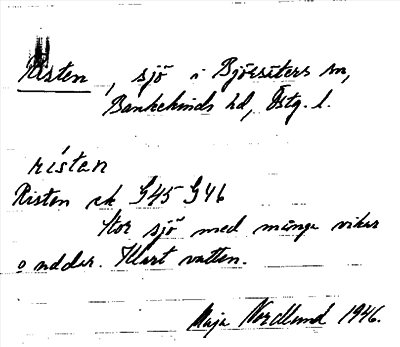 Risten, sjö i Björsäters sn,
Bankekinds hd, Östg. l.
rístan
Risten ek G45 G46
Stor sjö med många vikar
o uddar. Klart vatten.
Maja Nordlund 1946.